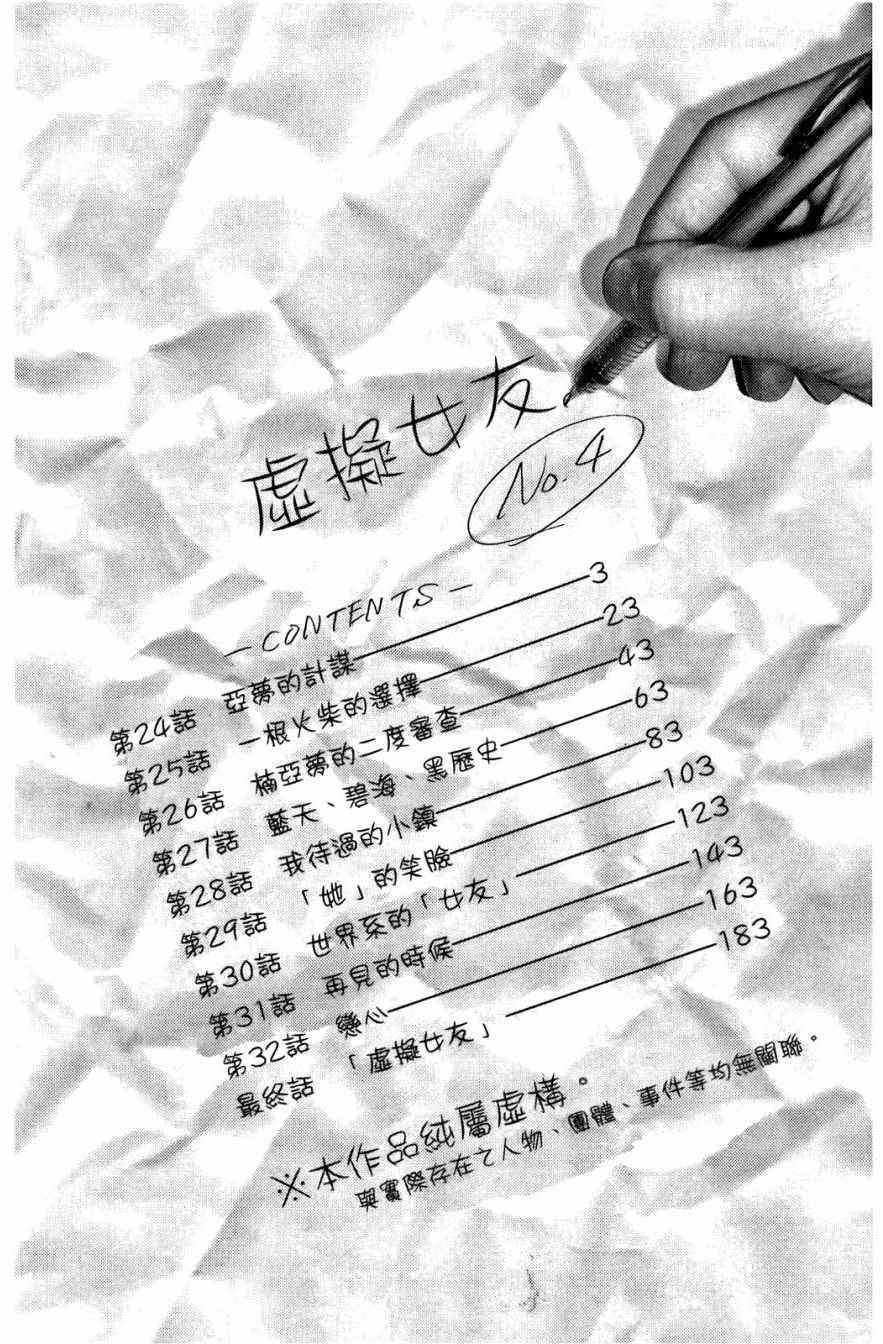 虛擬女友。
No.4
－CONTENTS－
第24話 亞夢的計謀 3
第25話 一根火柴的選擇 23
第26話 楠亞夢的二度審查 43
第27話 藍天、碧海、黑歷史 63
第28話 我待過的小鎮 83
第29話 「她」的笑臉 103
第30話 世界系的「女友」 123
第31話 再見的時候 143
第32話 戀心 163
最終話 「虛擬女友」 183
※本作品純屬虛構。
與實際存在之人物、團體、事件等均無關聯。